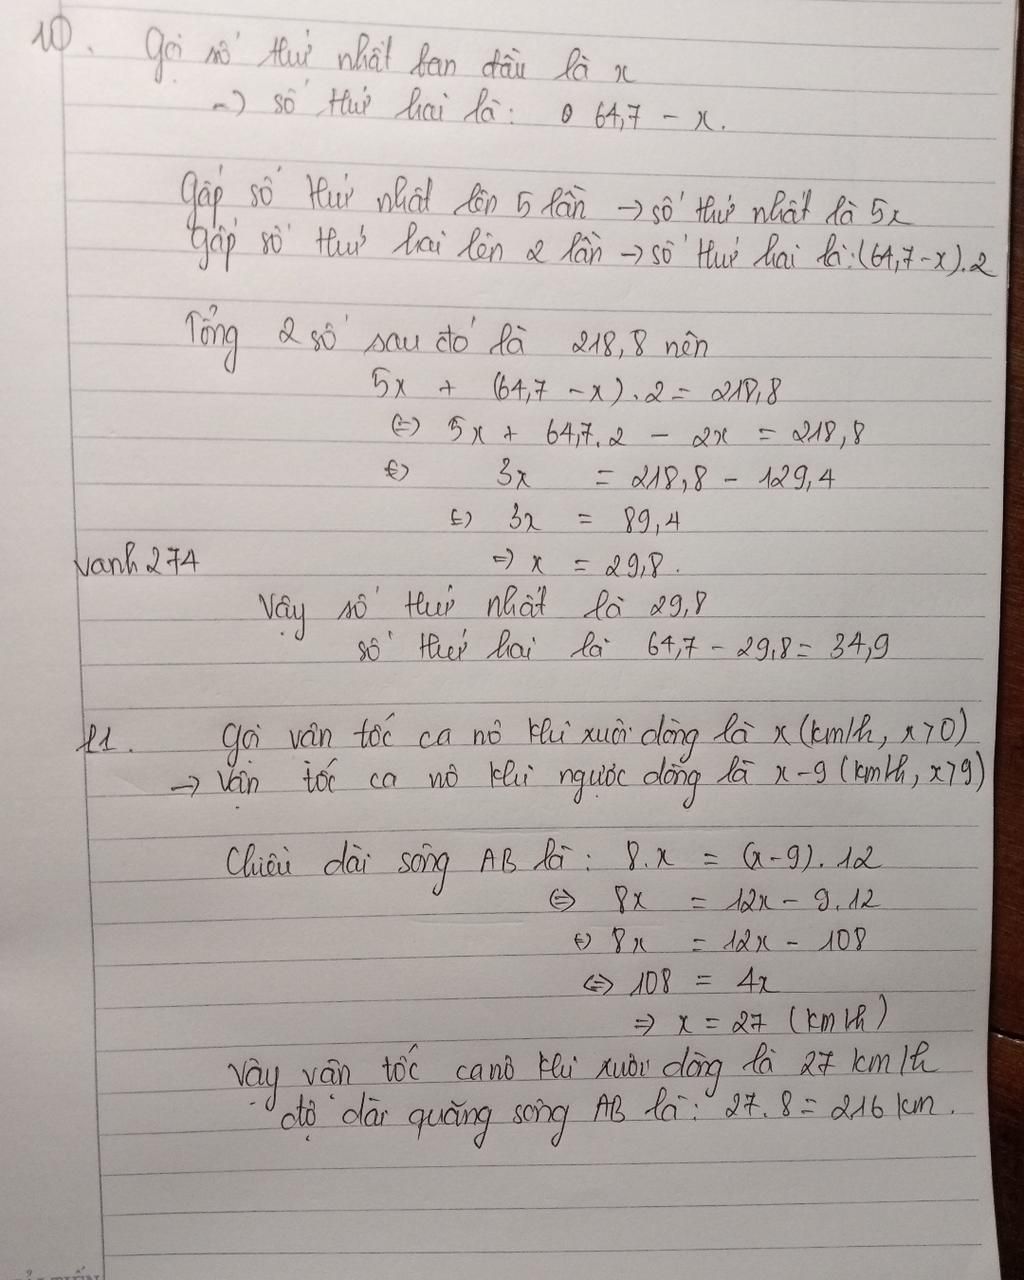 10. Gọi số thứ nhất ban đầu là x
=> số thứ hai là: 64,7 - x.
Gấp số thứ nhất lên 5 lần → số thứ nhất là 5x
Gấp số thứ hai lên 2 lần → số thứ hai là: (64,7-x).2
Tổng 2 số sau đó là 218,8 nên
5x + (64,7 - x).2 = 218,8
<=> 5x + 64,7.2 - 2x = 218,8
<=> 3x = 218,8 - 129,4
<=> 3x = 89,4
vanh274 => x = 29,8.
Vậy số thứ nhất là 29,8
số thứ hai là 64,7 - 29,8 = 34,9
11. Gọi vận tốc ca nô khi xuôi dòng là x (km/h, x>0)
→ Vận tốc ca nô khi ngược dòng là x-9 (km/h, x>9)
Chiều dài sông AB là: 8.x = (x-9).12
<=> 8x = 12x - 9.12
<=> 8x = 12x - 108
<=> 108 = 4x
=> x = 27 (km/h)
Vậy vận tốc canô khi xuôi dòng là 27 km/h
độ dài quãng sông AB là: 27.8 = 216 km.